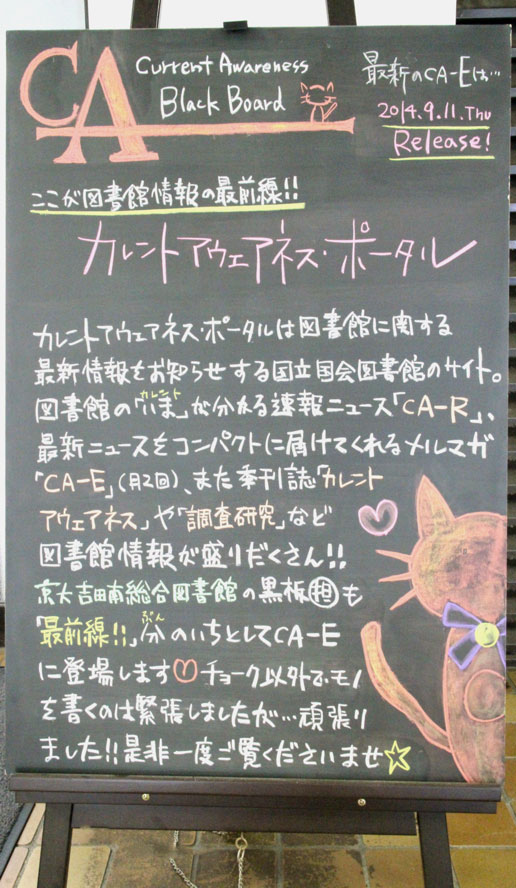 CA
Current Awareness
Black Board
最新のCA-Eは…
2014.9.11.Thu
Release!
ここが図書館情報の最前線!!
カレントアウェアネス・ポータル
カレントアウェアネス・ポータルは図書館に関する
最新情報をお知らせする国立国会図書館のサイト。
カレント
図書館の「いま」が分かる速報ニュース「CA-R」、
最新ニュースをコンパクトに届けてくれるメルマガ
「CA-E」(月2回)、また季刊誌「カレント
アウェアネス」や「調査研究」など
図書館情報が盛りだくさん!!
京大吉田南総合図書館の黒板担も
ぶん
「最前線!!」分のいちとしてCA-E
に登場します♡チョーク以外でモノ
を書くのは緊張しましたが…頑張り
ました!!是非一度ご覧くださいませ☆